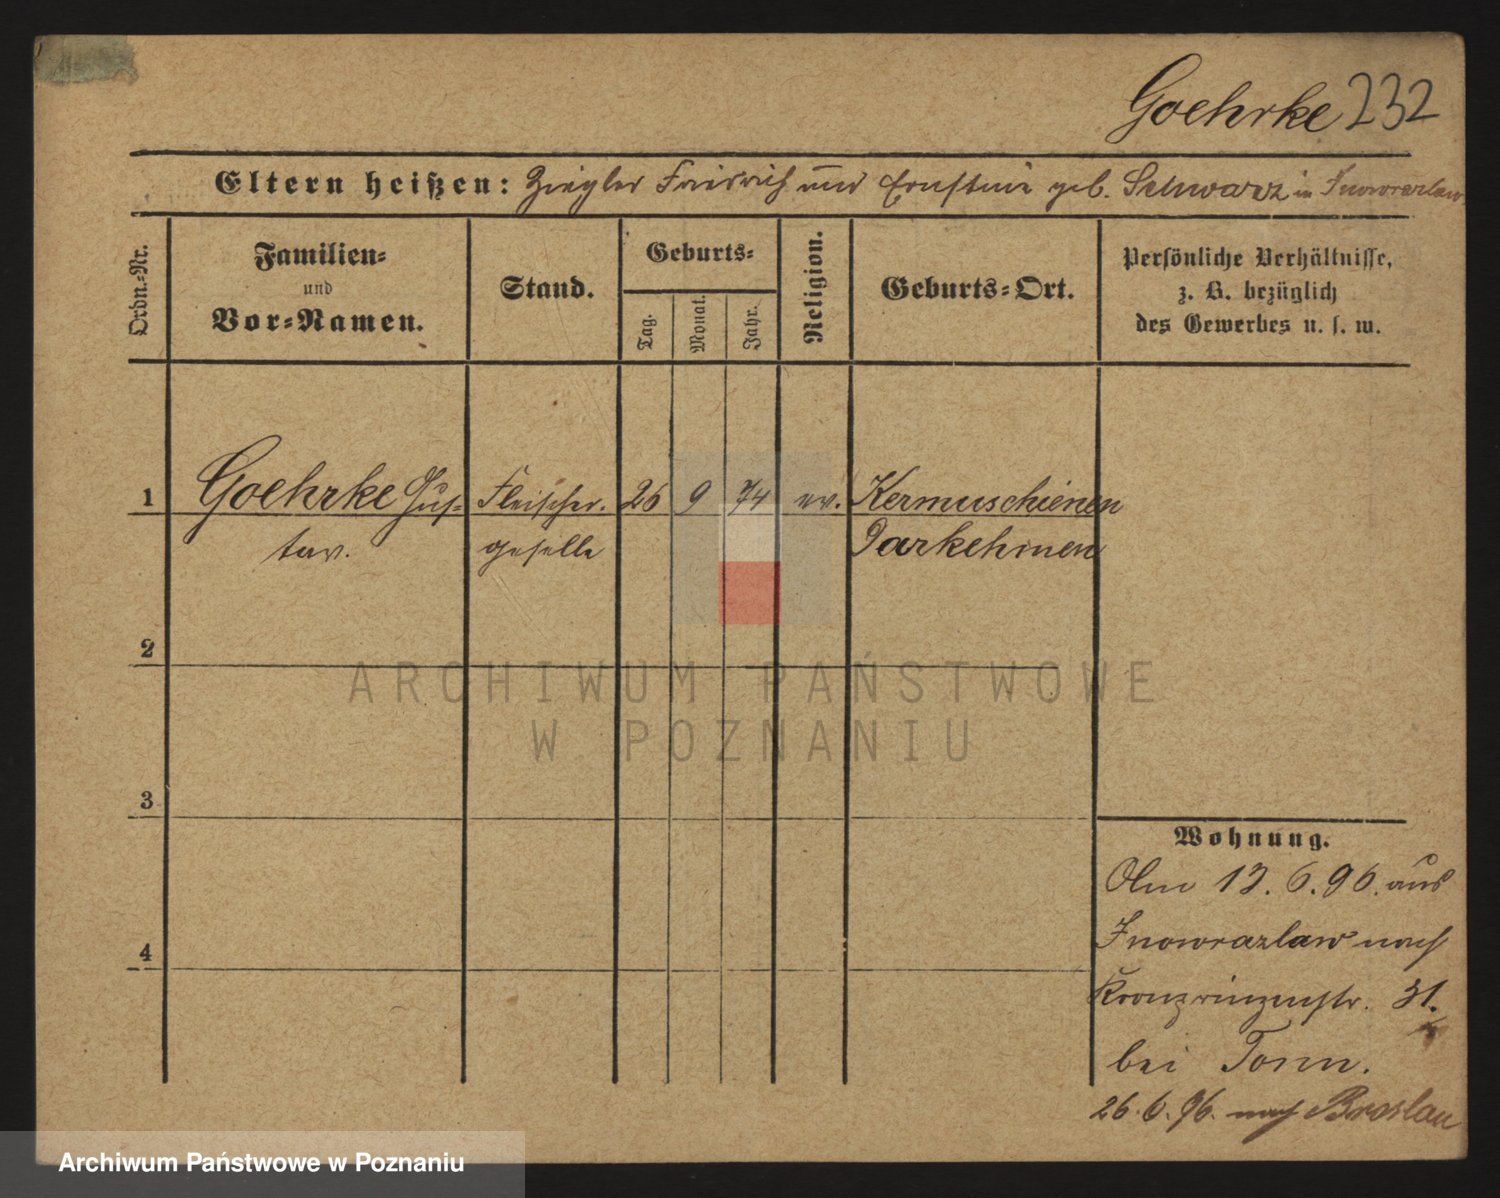 Goehrke 232
Eltern heißen: Ziegler Friedrich und Ernstine geb. Schwarz in Inowrazlaw
Ordn.-Nr.
Familien-
und
Vor-Namen.
Stand.
Geburts-
Tag.
Monat.
Jahr.
Religion.
Geburts-Ort.
Persönliche Verhältnisse,
z. B. bezüglich
des Gewerbes u. s. w.
1 Goehrke Gus- Fleischer- 26 9 74 ev. Kermuschienen
tav. geselle Darkehmen
2
3
4
Wohnung.
Am 13. 6. 96. aus
Inowrazlaw nach
Kronprinzenstr. 31.
bei Tonn.
26. 6. 96. nach Breslau
ARCHIWUM PAŃSTWOWE
W POZNANIU
Archiwum Państwowe w Poznaniu